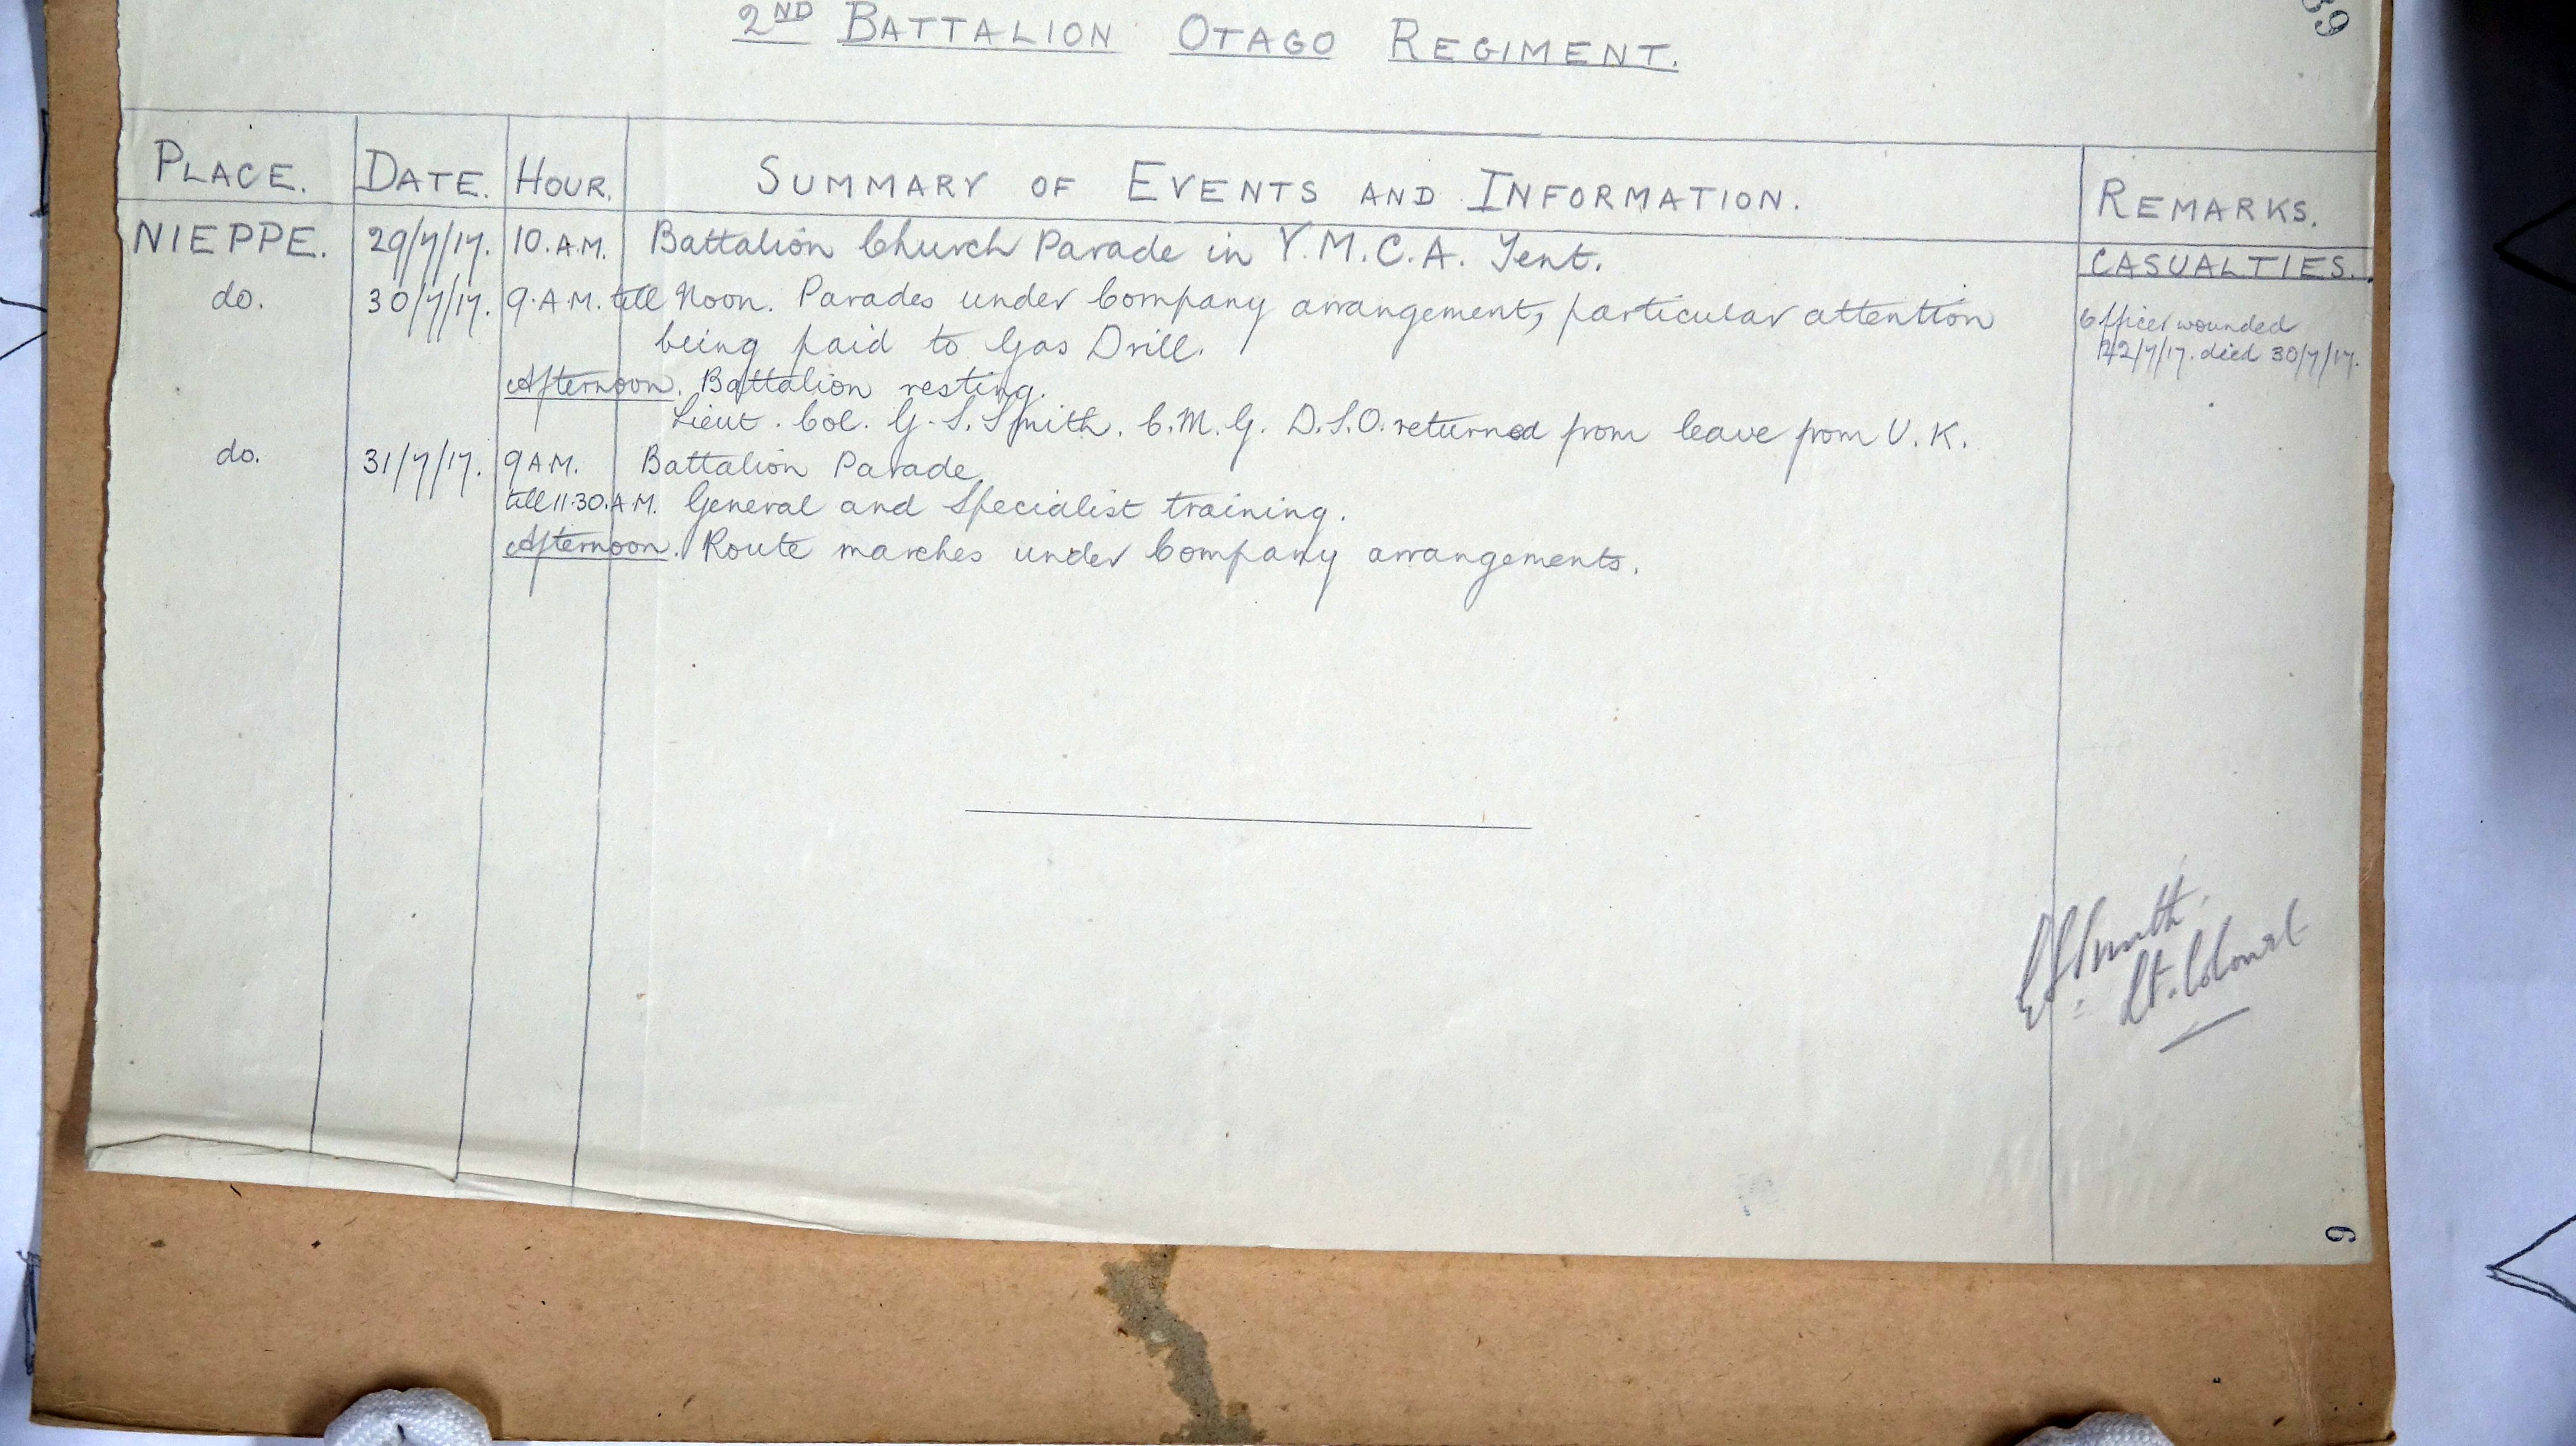 39
2ND BATTALION OTAGO REGIMENT.
PLACE. DATE. HOUR. SUMMARY OF EVENTS AND INFORMATION. REMARKS.
NIEPPE. 29/7/17. 10.A.M. Battalion Church Parade in Y.M.C.A. Tent.
CASUALTIES.
do. 30/7/17. 9.A.M. till Noon. Parades under Company arrangement, particular attention
being paid to Gas Drill.
Officer wounded
22/7/17. died 30/7/17.
Afternoon. Battalion resting.
Lieut. Col. G. S. Smith. C.M.G. D.S.O. returned from leave from U.K.
do. 31/7/17. 9 AM. Battalion Parade
till 11.30.A.M. General and Specialist training.
Afternoon. Route marches under Company arrangements.
GSSmith.
Lt. Colonel
6